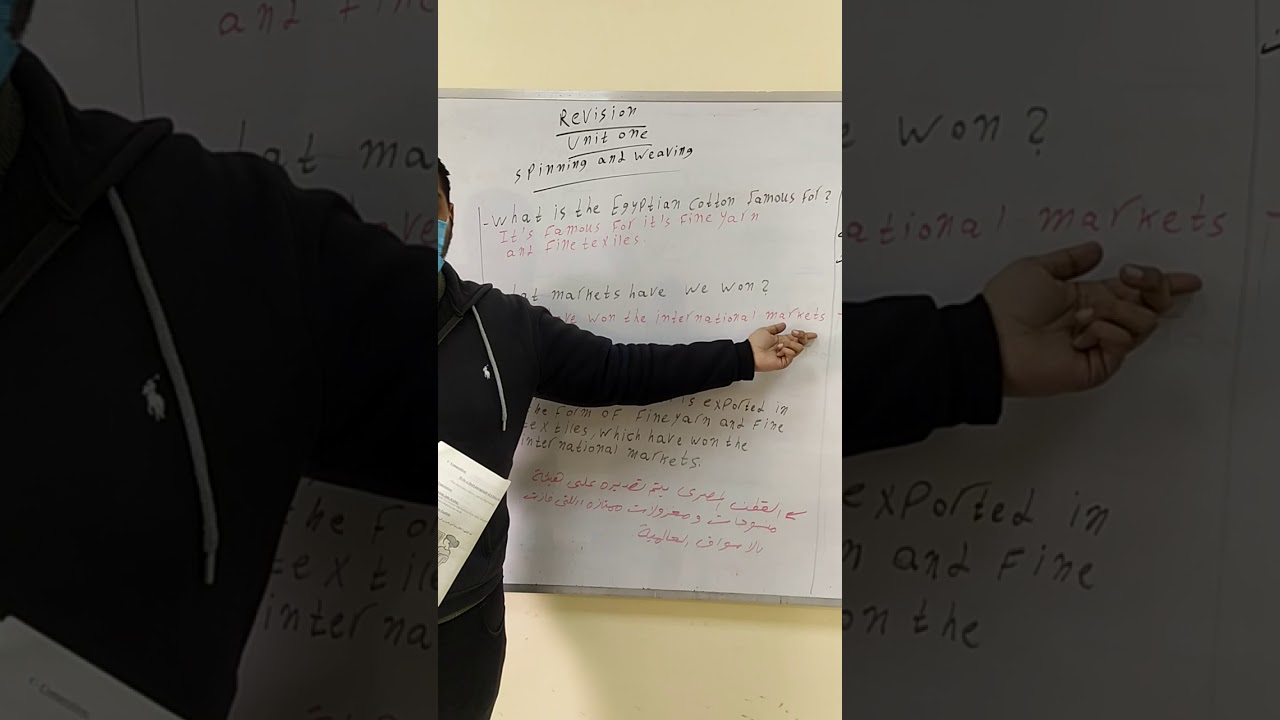 Revision
Unit one
Spinning and Weaving
- What is the Egyptian cotton famous for?
It's famous for it's fine yarn
and fine textiles.
markets have we won?
won the international markets
is exported in
the form of fine yarn and fine
textiles, which have won the
international markets.
القطن المصرى يتم تصديره على هيئة
منسوجات و مغزولات ممتازه اللتى فازت
بالاسواق العالمية